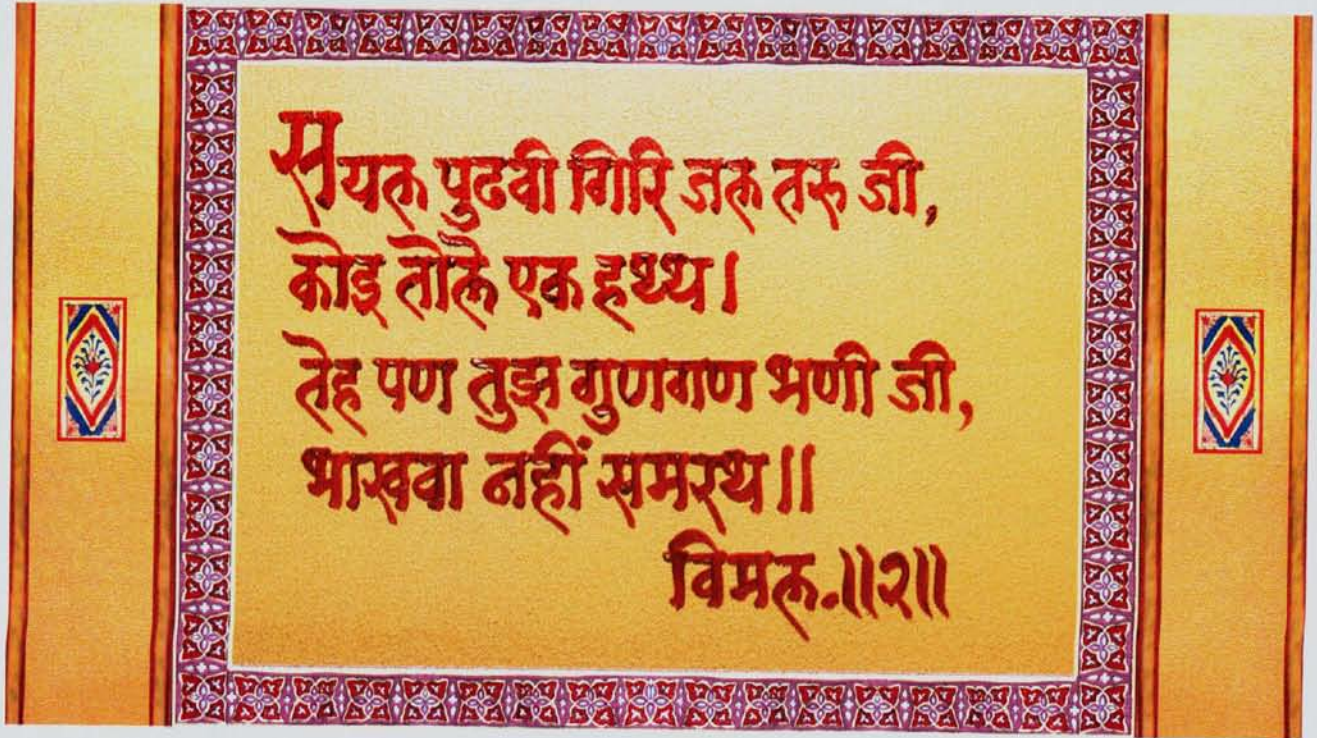 सयल पुढवी गिरि जल तरु जी,
कोइ तोलै एक हथ्थ।
तेह पण तुझ गुणगण भणी जी,
भाखवा नहीं समरथ॥
विमल.॥२॥